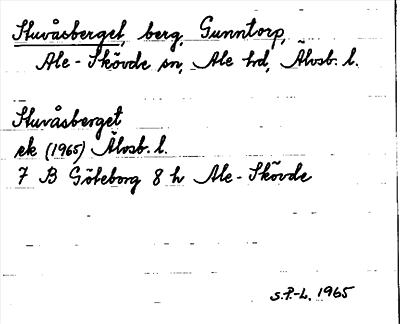 Stuvåsberget, berg, Gunntorp,
Ale-Skövde sn, Ale hd, Älvsb. l.
Stuvåsberget
ek (1965) Älvsb. l.
7 B Göteborg 8 h Ale-Skövde
S.P.-L. 1965